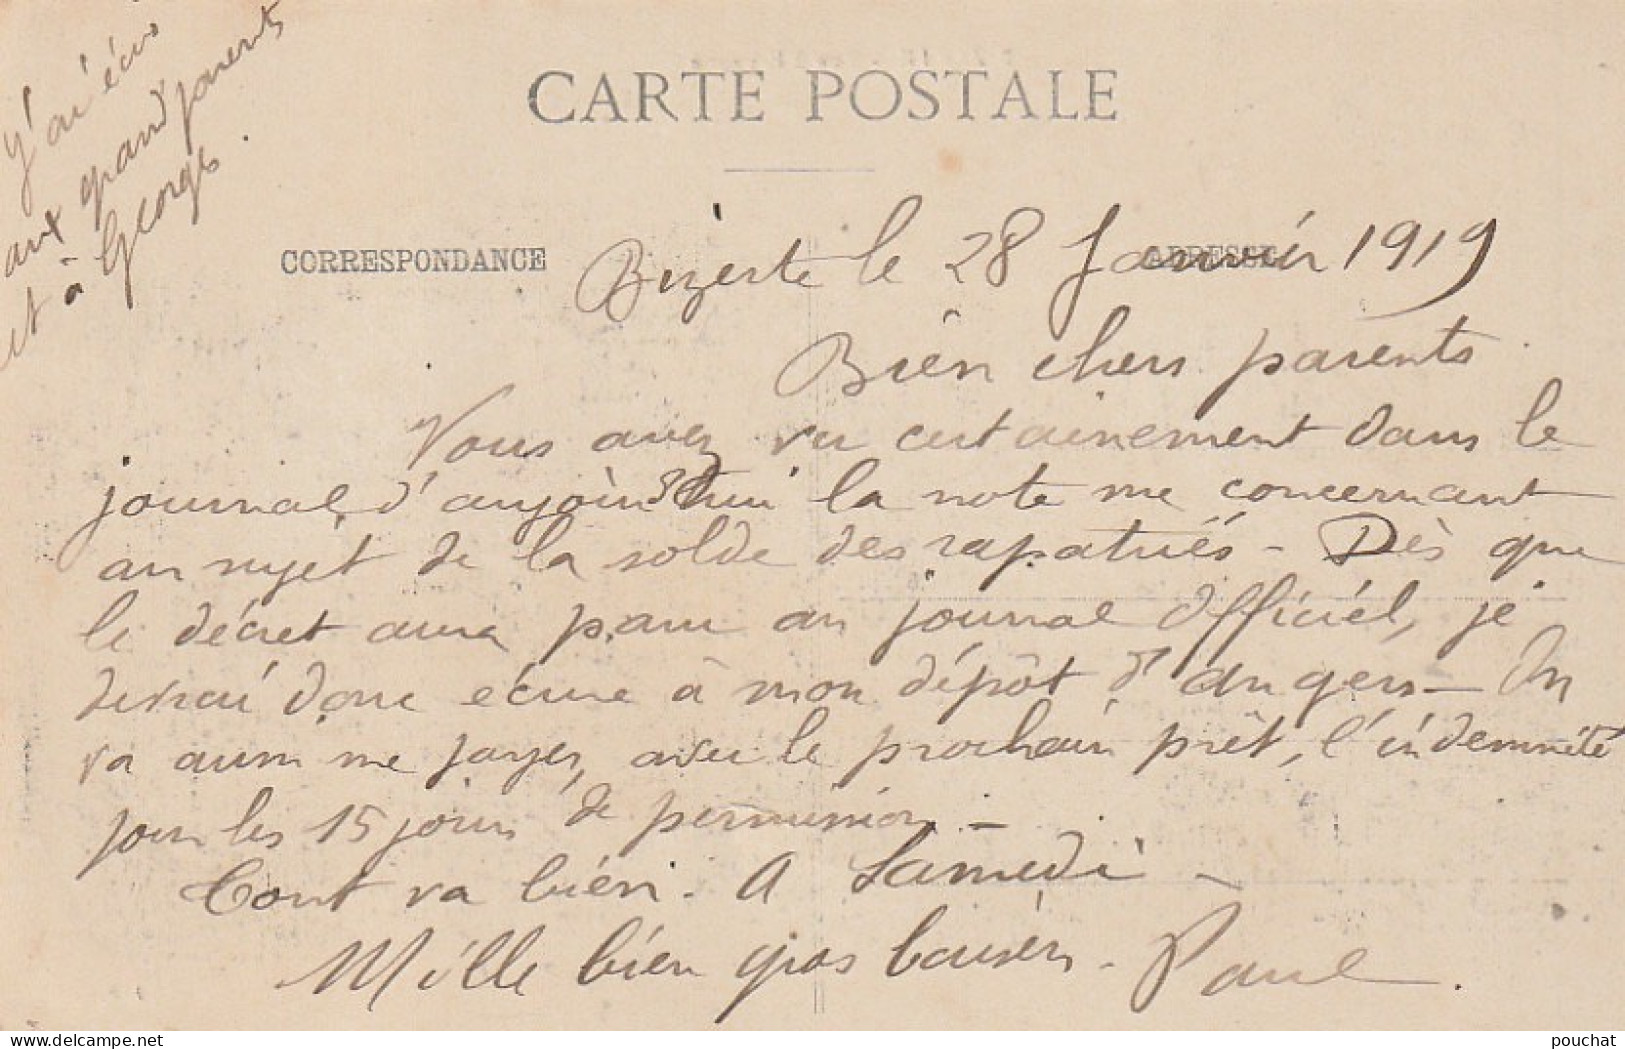 J'ai écris
aux grand'parents
et à Georges.
CARTE POSTALE
CORRESPONDANCE
ADRESSE
Bizerte le 28 Janvier 1919
Bien chers parents
Vous avez vu certainement dans le
journal d'aujourd'hui la note me concernant
au sujet de la solde des rapatriés - Dès que
le décret aura paru au journal Officiel, je
devrai donc écrire à mon dépôt d'Angers - On
va aussi me payer, avec le prochain prêt, l'indemnité
pour les 15 jours de permission -
Tout va bien. A Samedi -
Mille bien gros baisers - Paul.
www.delcampe.net
pouchat